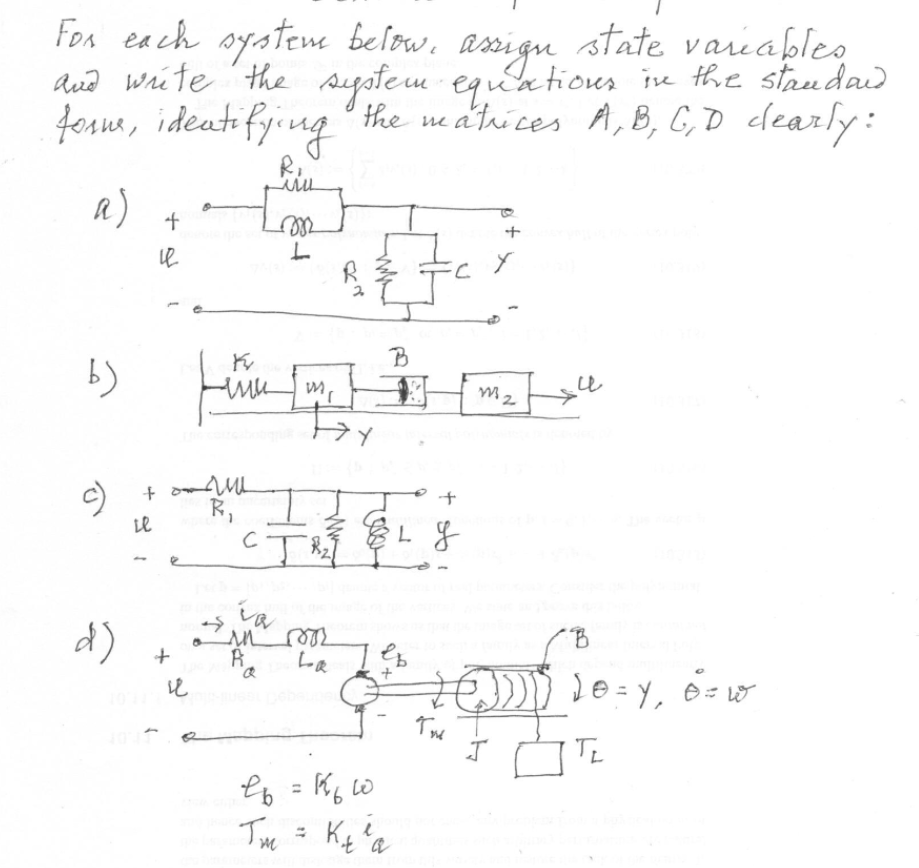 For each system below, assign state variables
and write the system equations in the standard
form, identifying the matrices A, B, C, D clearly:
a)
R1
+
u
-
L
R2
C
+
y
-
b)
K
m1
B
m2
u
y
c)
+
u
-
R1
C
R2
L
+
y
-
d)
ia
+
u
-
Ra
La
eb
+
-
Tm
J
B
θ = y, θ̇ = ω
TL
eb = Kb ω
Tm = Kt ia